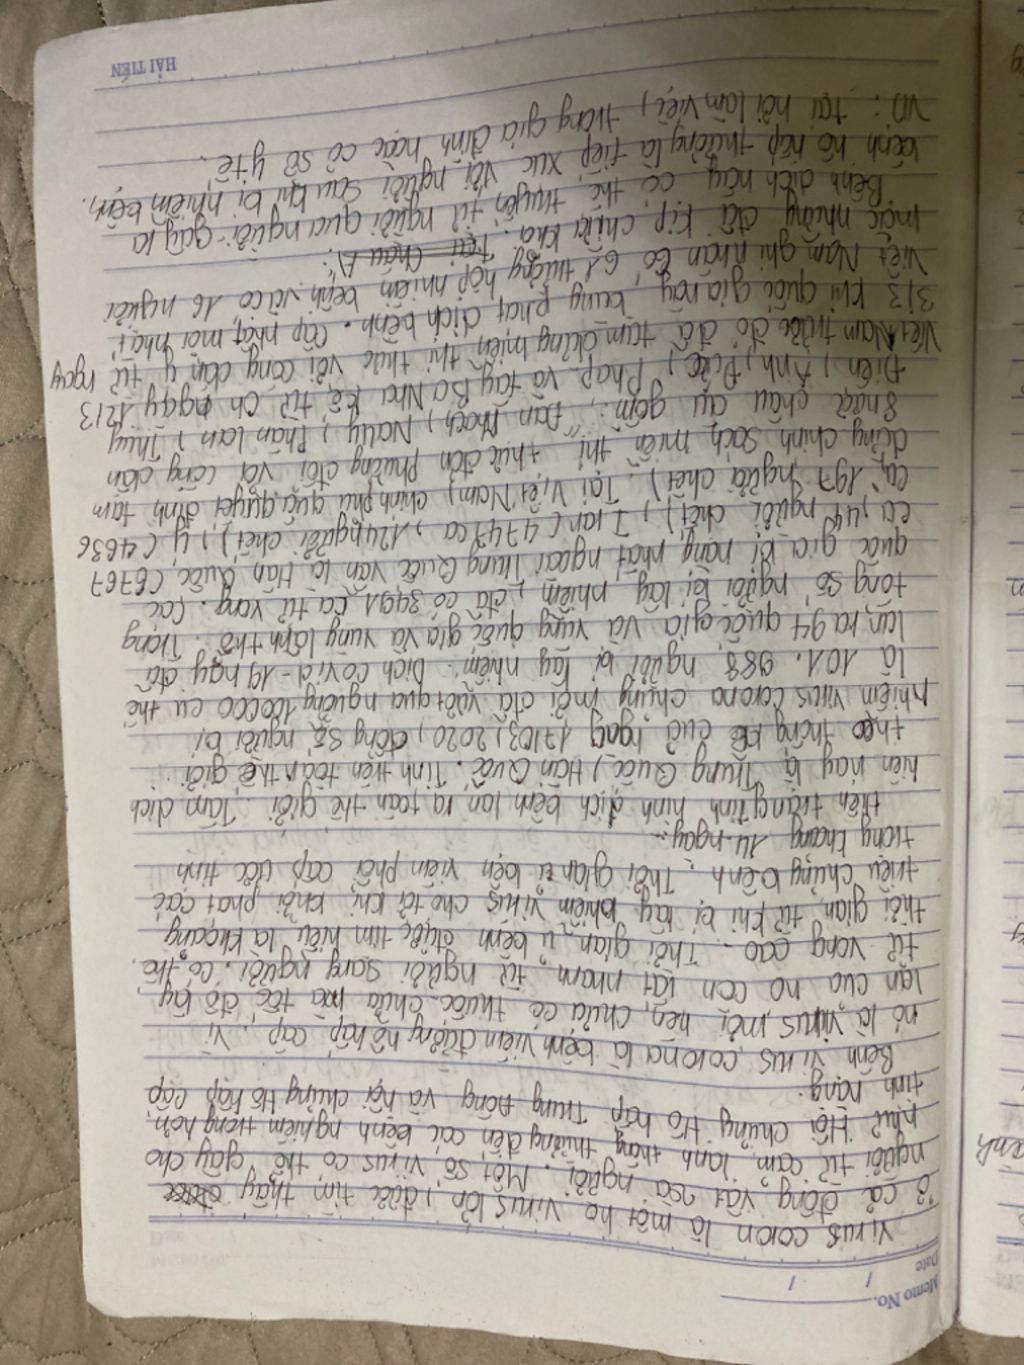 Memo No.
Date / /
virus coron là một họ virus lớn, được tìm thấy
ở cả động vật và người. Một số virus có thể gây cho
người từ cảm lạnh thông thường đến các bệnh nghiêm trọng hơn,
như Hội chứng Hô hấp Trung Đông và hội chứng Hô hấp cấp
tính nặng.
Bệnh virus corona là bệnh viêm đường hô hấp cấp. Vì
nó là virus mới nên chưa có thuốc chữa mà tốc độ lây
lan của nó còn rất nhanh từ người sang người. có thể
tử vong cao. Thời gian ủ bệnh được tìm hiểu là khoảng
thời gian từ khi bị lây nhiễm virus cho tới khi khởi phát các
triệu chứng bệnh. Thời gian ủ bện viêm phổi cấp ước tính
trong khoảng 14 ngày.
tiên trạng tình hình dịch bệnh lan ra toàn thế giới. Tâm dịch
hiện nay là Trung Quốc, Hàn Quốc. Tính trên toàn thế giới
theo thống kê cuối ngày 17/03/2020, tổng số người bị
nhiễm virus corona chủng mới đã vượt qua ngưỡng 100000 cụ thể
là 101. 988 người bị lây nhiệm. Dịch Covid-19 nay đã
lan ra 94 quốc gia và vùng quốc gia và vùng lãnh thổ. Trong
tổng số người bị lây nhiễm, đã có 3491 ca tử vong. Các
quốc gia bị nặng nhất ngoài Trung Quốc vẫn là Hàn Quốc (6767
ca, 44 người chết), Iran (4747 ca, 124 người chết), ý (4636
ca, 197 người chết). Tại Việt Nam, chính phủ quyết định tạm
dừng chính sách miễn thị thực đơn phương đối với công dân
8 nước châu âu gồm: Đan Mạch, Nauy, Phần Lan, Thụy
Điển, Anh, Đức, Pháp và Tây Ba Nha kể từ ngày 12/3
Việt Nam trước đó đã tạm dừng miễn thị thực với công dân ý từ ngày
3/3 khi quốc gia này bùng phát dịch bệnh. Cập nhật mới nhất
Việt Nam ghi nhận có 61 trường hợp nhiễm bệnh với có 16 người
mặc những đã kịp chữa khỏi. Tại Châu Á:
Bệnh dịch này có thể truyền từ người qua người gây ra
bệnh hô hấp thường là tiếp xúc với người sau khi bị nhiễm bệnh.
VD: tại nơi làm việc, trong gia đình hoặc cơ sở y tế.
HẢI TIẾN